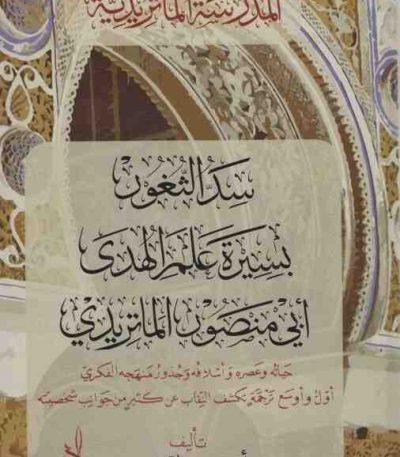 المدرسة الماتريدية
سد الثغور
بسيرة علم الهدى
أبي منصور الماتريدي
حياته وعصره وأسلافه وجذور منهجه الفكري
أول وأوسع ترجمة تكشف النقاب عن كثير من جوانب شخصيته
تأليف